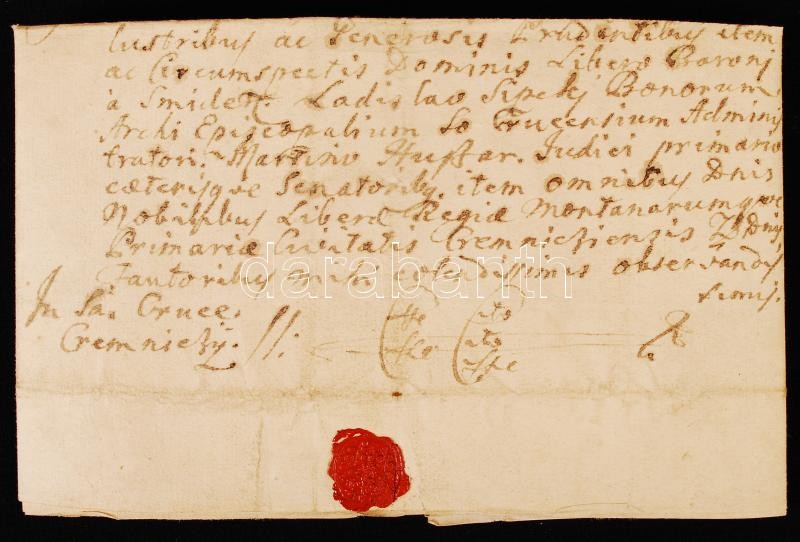 lustribus ac Generosis Prudentibus item
ac Circumspectis Dominis Libero Baroni
à Ladislao Bonorum
Archi Episcopalium So Crucensium Admini
stratori. Martino Huszar. Judici primario
cæterisqve Senatoribq item omnibus Dnis
Nobilibus Liberæ Regiæ Montanarumqve
Primariæ Civitatis Cremnicziensis Dnis
Fautoribus mihi colendissimis observandis
simis.
In Sa. Cruce.
Cremniczÿ.
darabanth